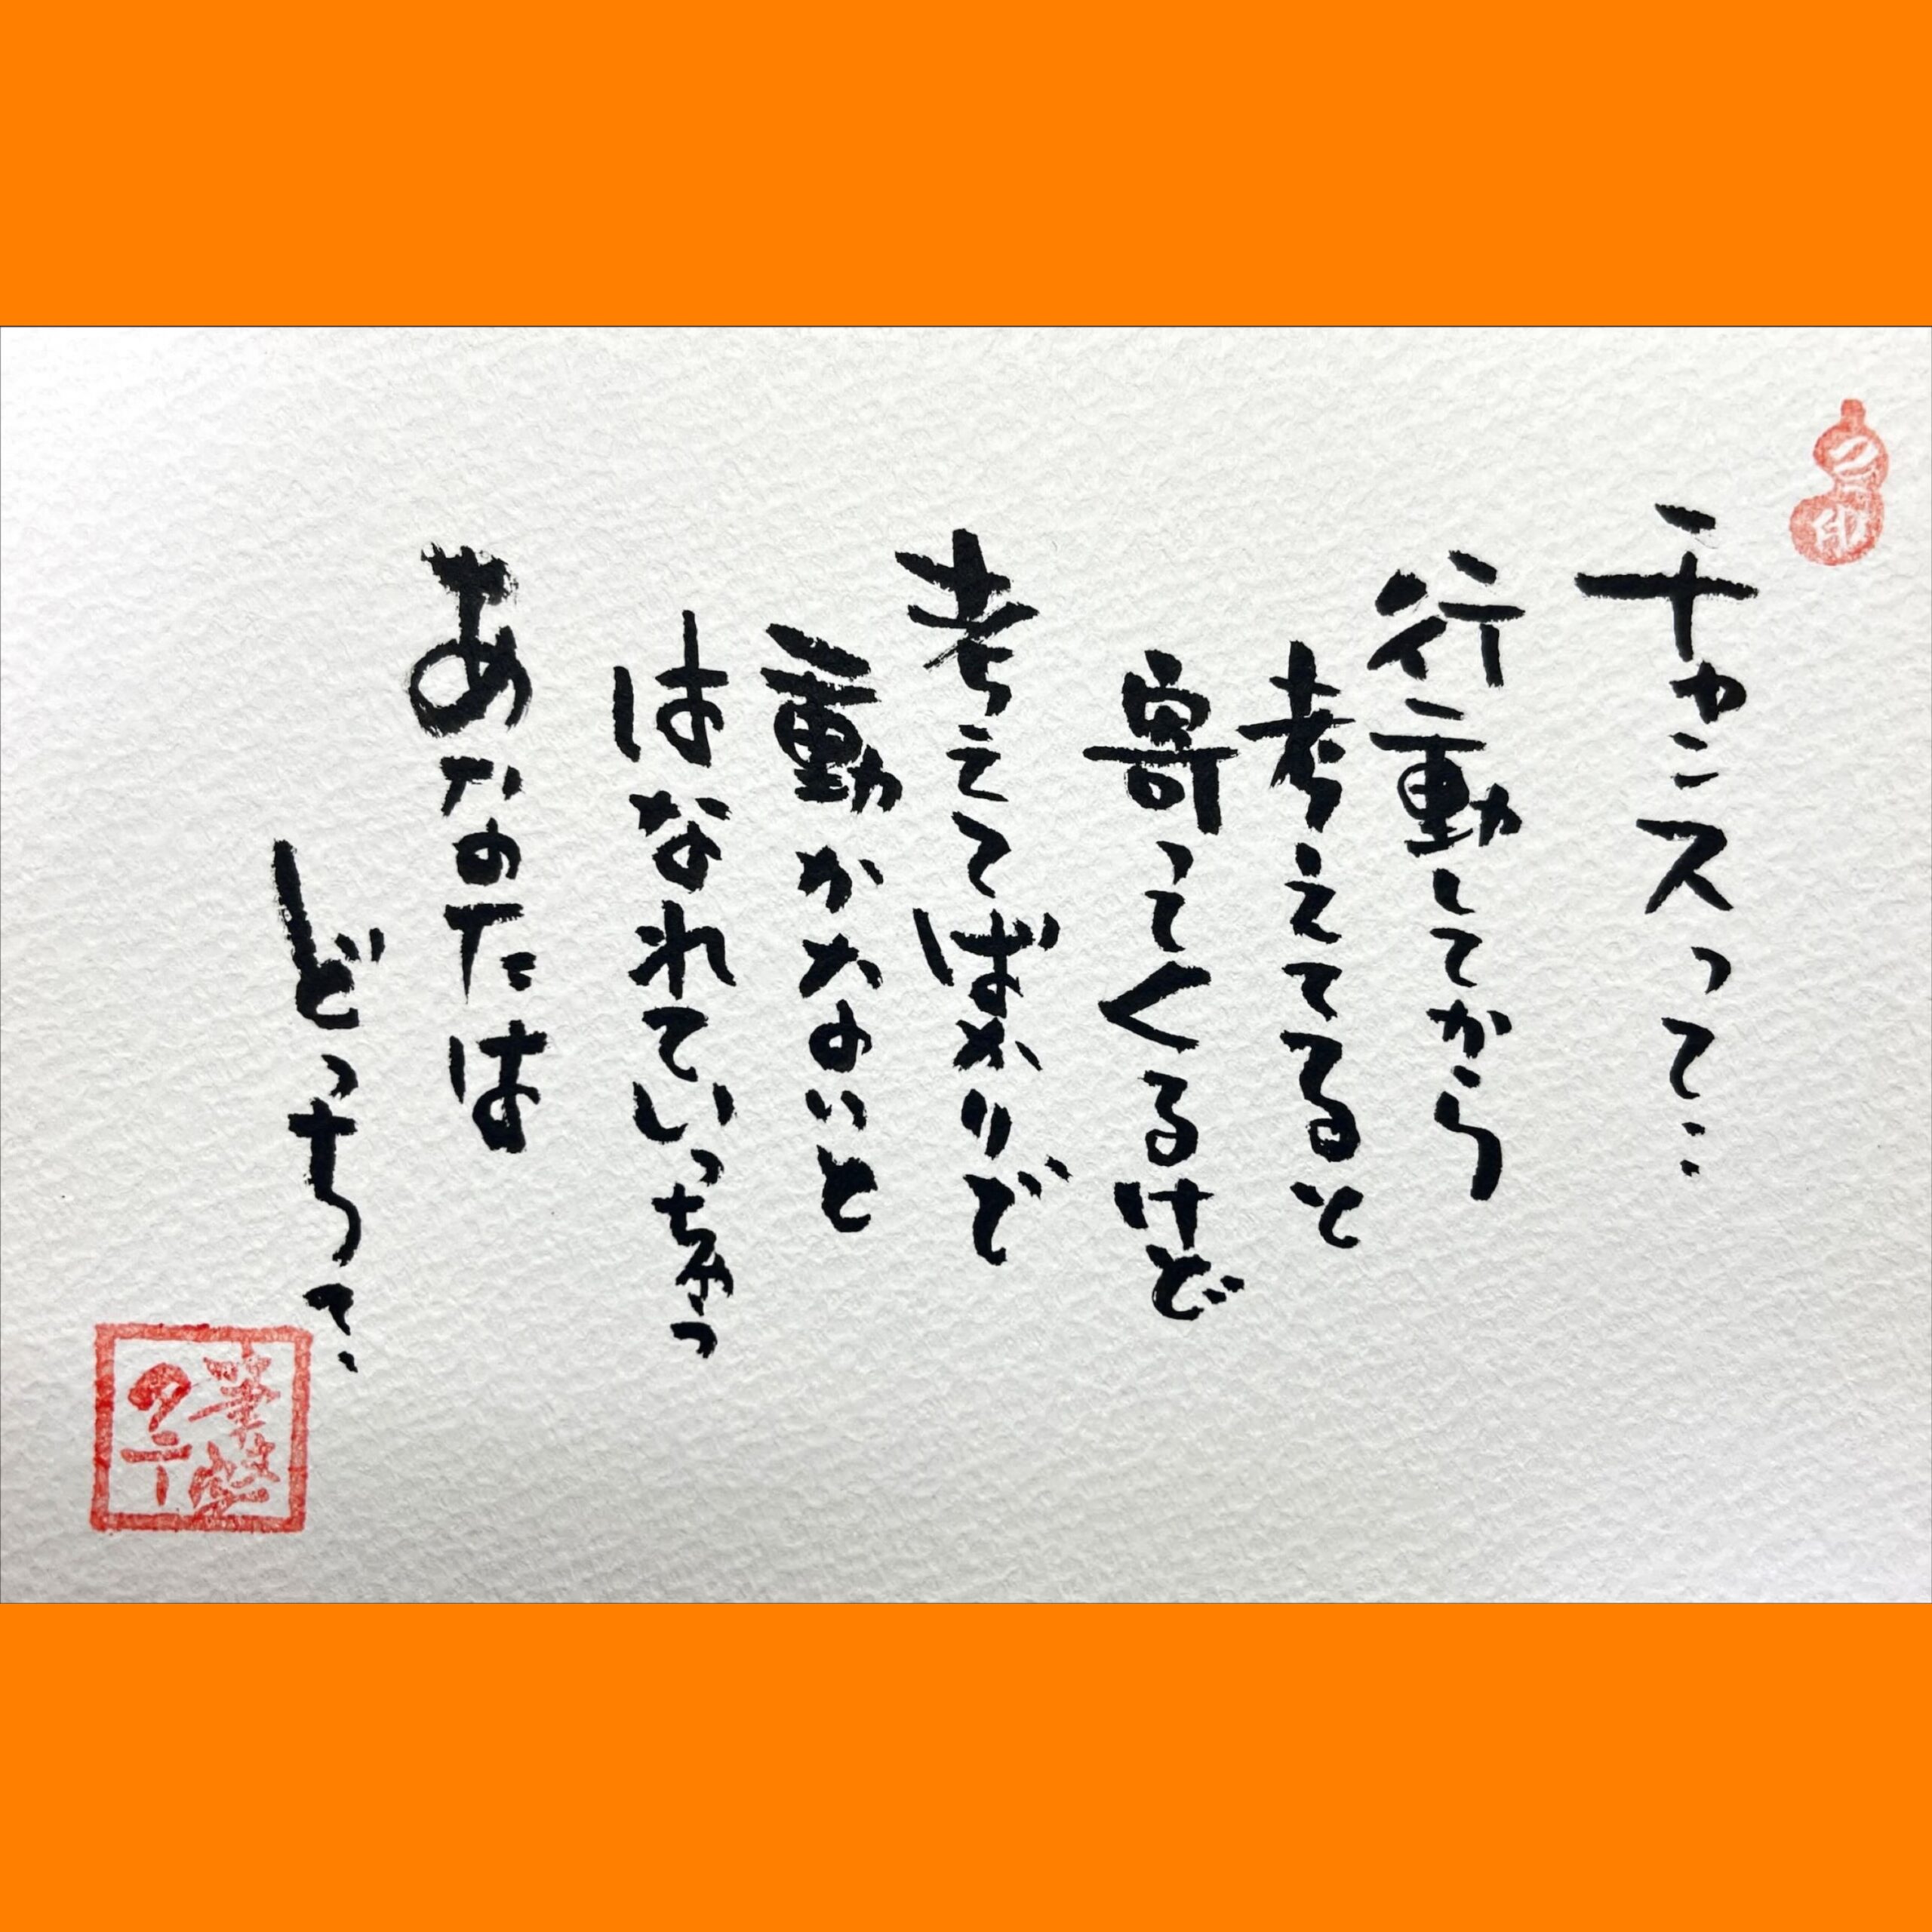 チャンスって‥
行動してから
考えてると
寄ってくるけど
考えてばかりで
動かないと
はなれていっちゃう
あなたは
どっち?